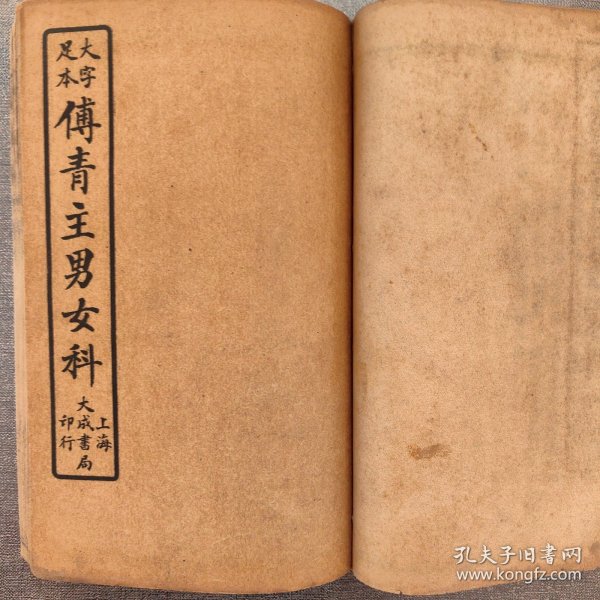 大字
足本
傅青主男女科
上海
大成書局
印行
孔夫子旧书网
www.kongfz.com